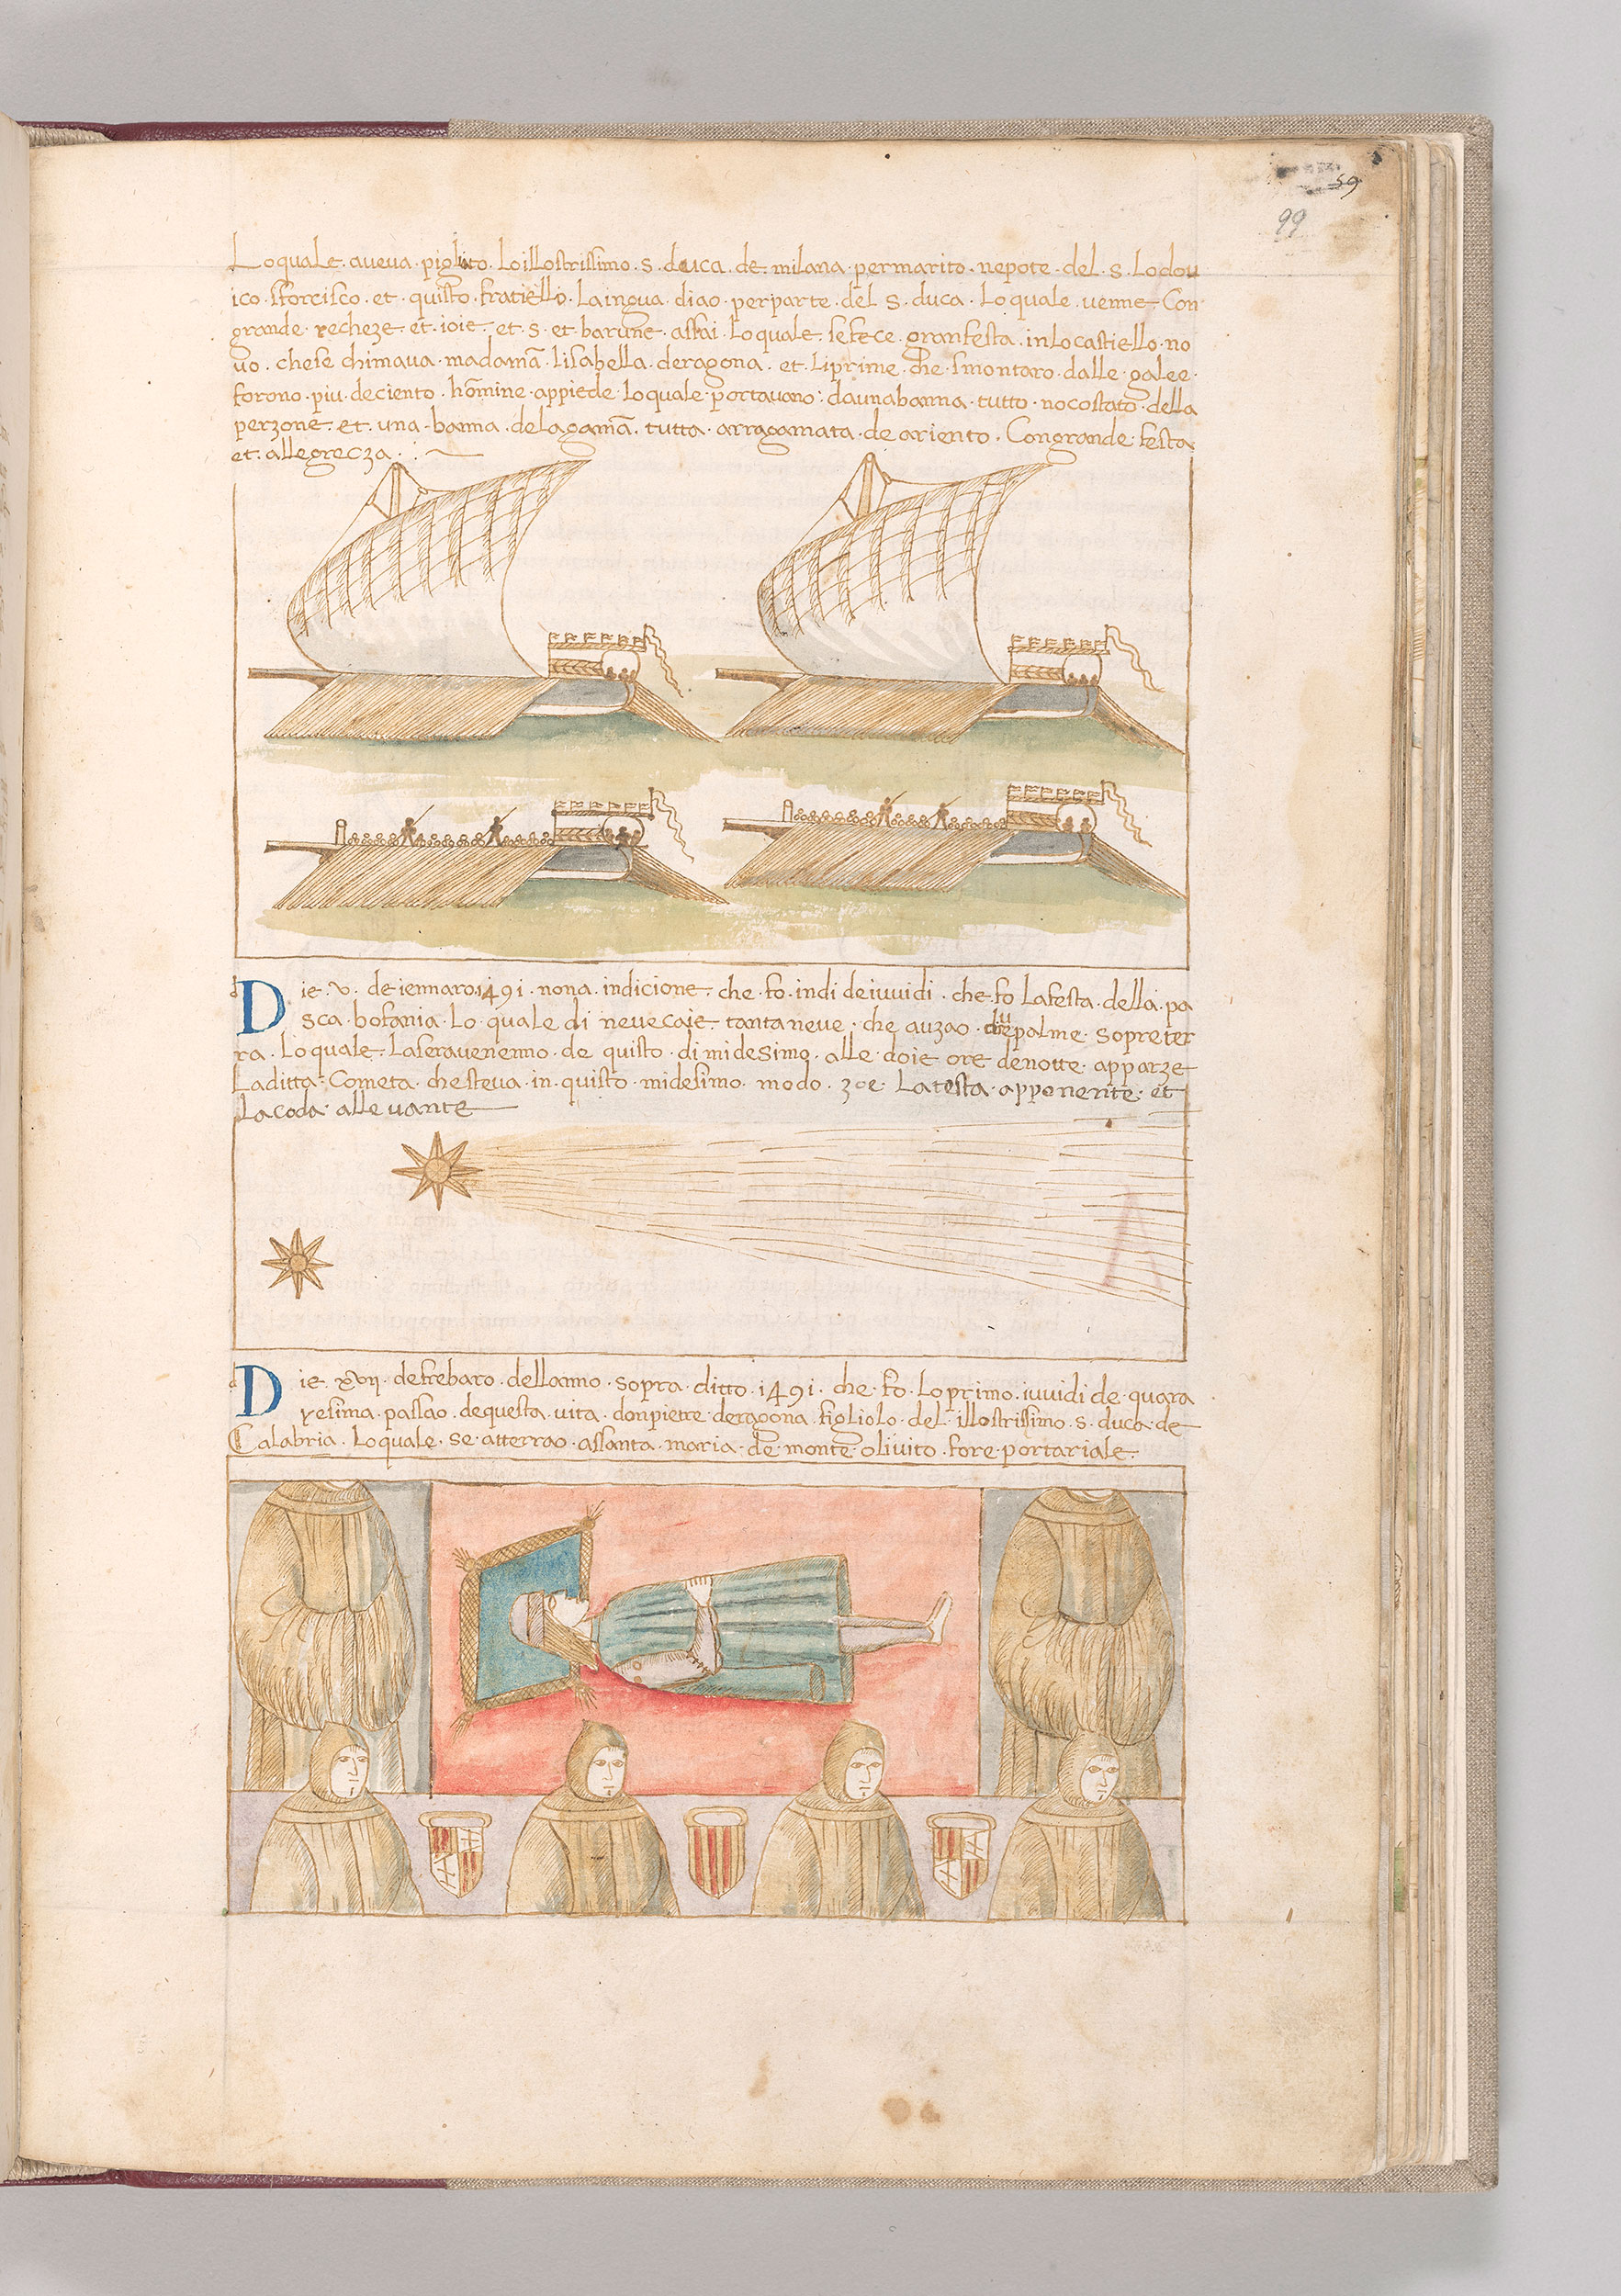 59
99
Loquale · aveva · pigliato · Loillostrissimo · s · duca · de · milana · permarito · nepote · del · s · Lodou
ico · sforcisco · et · quisto · fratiello · Laingua · diao · perparte · del · s · duca · Lo quale · uenne · Con
grande · recheze · et · ioie · et · s · et · barune · assai · Lo quale · se fece · gran festa · inLo castiello · no
uo · chese chimaua · madamã · lisabella · deragona · et · Li prime · che · smontaro · dalle · galee ·
forono · piu · deciento · hõmine · appiede · lo quale · portauano : daunabanna · tutto · nocostato · della
perzone · et · una · banna · delagamã · tutta · arragamata · de ariento · Con grande · festa
et · allegrecza ·
Die · v · de iennaro 1491 · nona · indicione · che · fo · indi deiuuidi · che fo Lafesta · della · pa
sca · bofania · Lo · quale di neuecaie · tanta neue · che auzao · palme · sopre ter
ra · Lo quale · Laserauenenno · de quisto · dimidesimo · alle · doie ore denotte · apparze
La ditta · Cometa · chesteua · in · quisto · midesimo · modo · zoe · La testa · apponente · et
La coda · alleuante
Die · xvij · defrebaro · dellanno · sopra · ditto · 1491 · che · fo · Lo primo · iuuidi de · quara
resima · passao · dequesta · uita · donpietre · deragona · figliolo · del · illostrissimo · s · duca · de
Calabria · Lo quale · se atterrao · assanta · maria · de · monte · oliuito · fore · portariale ·